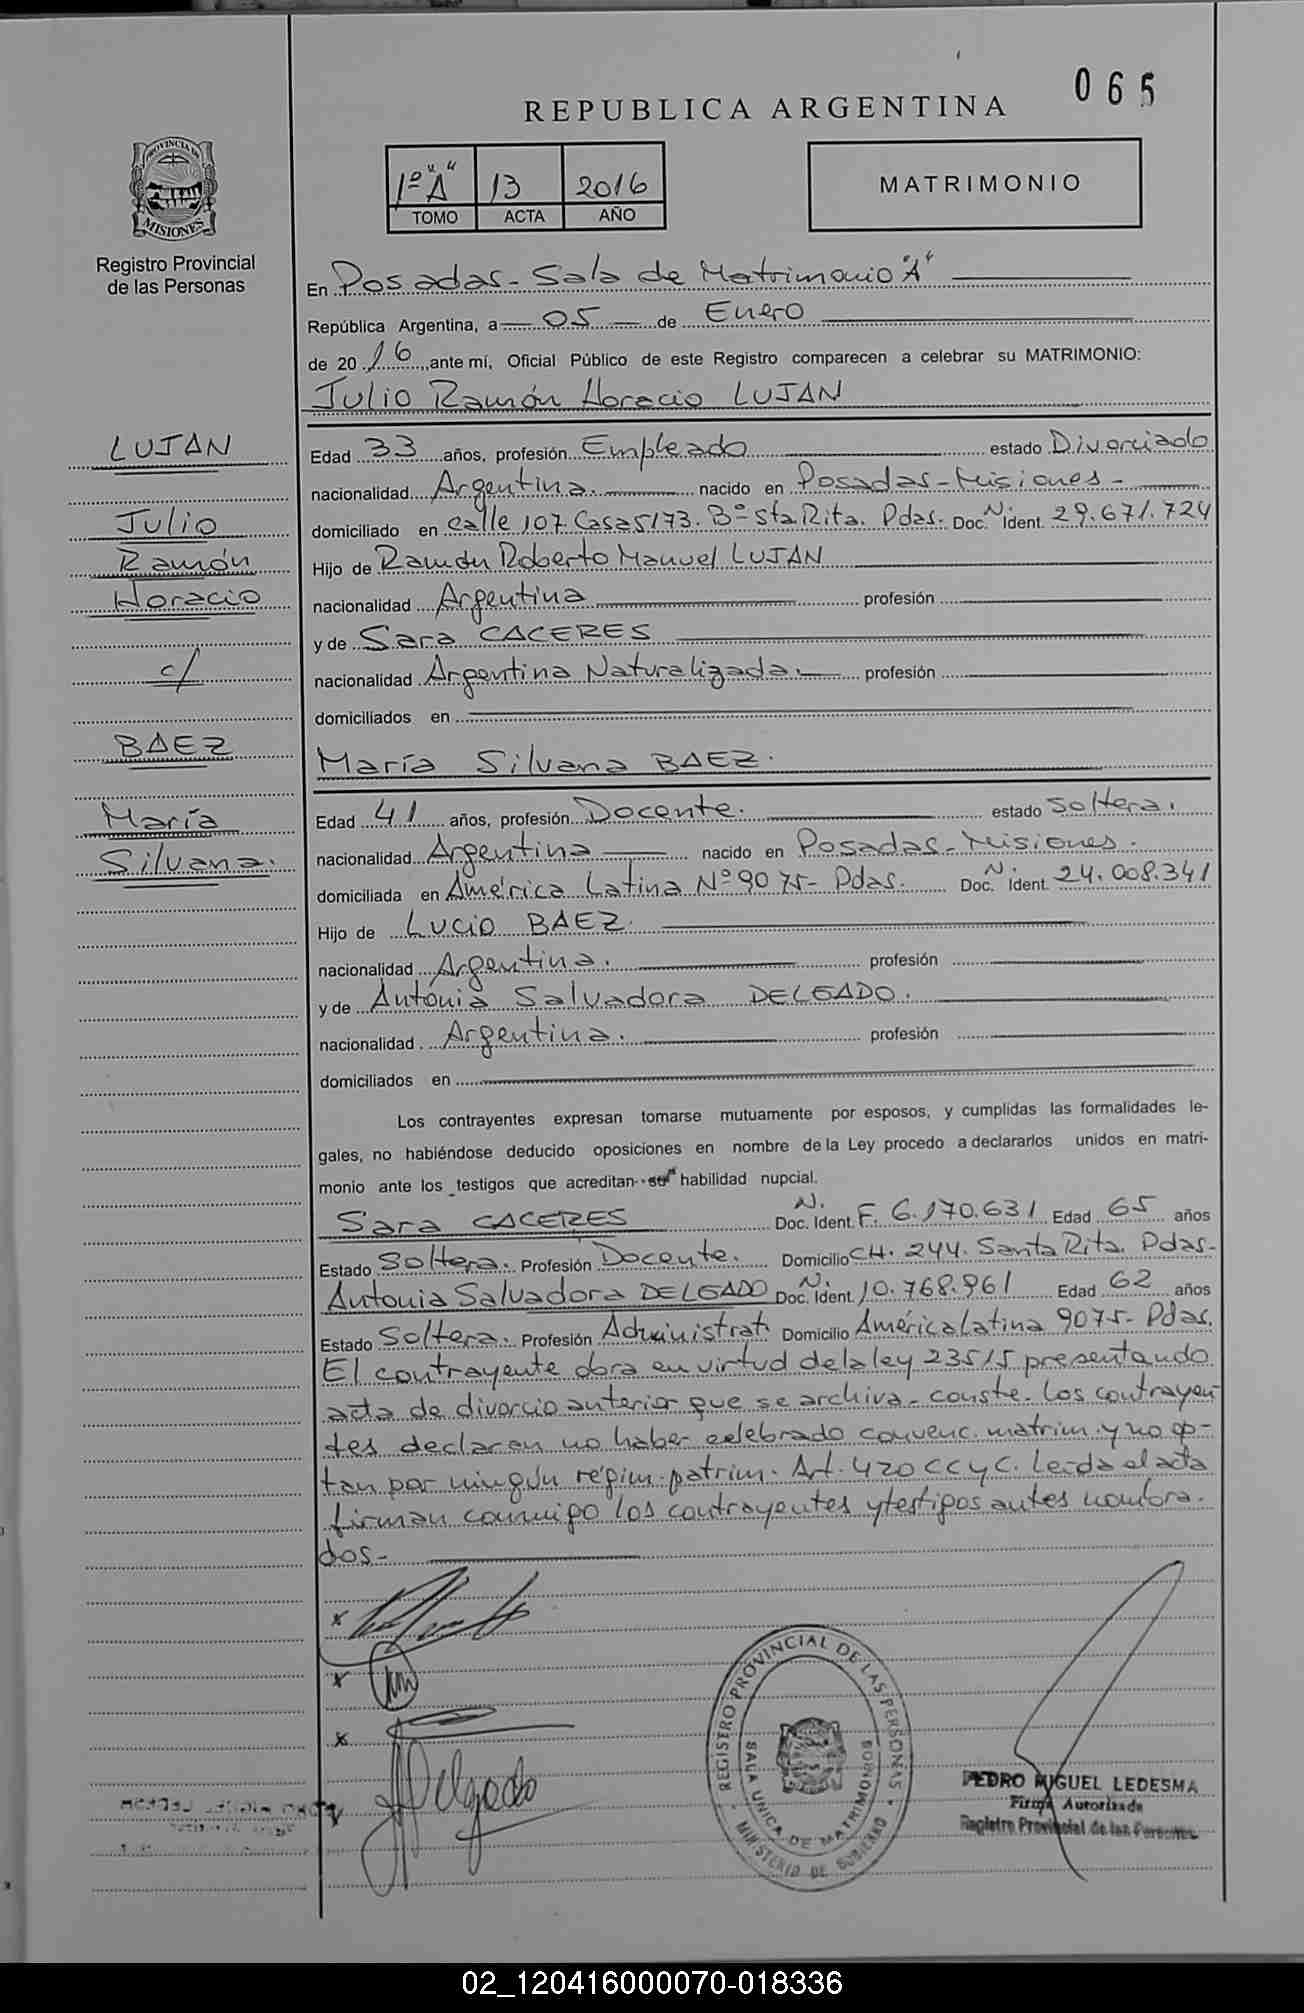 065
REPUBLICA ARGENTINA
PROVINCIA DE
MISIONES
Registro Provincial
de las Personas
1º "A" 13 2016
TOMO ACTA AÑO
MATRIMONIO
En Posadas - Sala de Matrimonio "A"
República Argentina, a 05 de Enero
de 2016, ante mí, Oficial Público de este Registro comparecen a celebrar su MATRIMONIO:
Julio Ramón Horacio LUJAN
LUJAN
Julio
Ramón
Horacio
c/
BAEZ
María
Silvana.
Edad 33 años, profesión Empleado estado Divorciado
nacionalidad Argentina. nacido en Posadas - Misiones -
domiciliado en calle 107. Casa 5173. Bº Sta Rita. Pdas. Doc. N Ident. 29.671.724
Hijo de Ramón Roberto Manuel LUJAN
nacionalidad Argentina profesión
y de Sara CACERES
nacionalidad Argentina Naturalizada. profesión
domiciliados en
María Silvana BAEZ.
Edad 41 años, profesión Docente. estado Soltera.
nacionalidad Argentina nacido en Posadas - Misiones.
domiciliada en América Latina Nº 9075 - Pdas. Doc. N Ident. 24.008.341
Hijo de Lucio BAEZ.
nacionalidad Argentina. profesión
y de Antonia Salvadora DELGADO.
nacionalidad Argentina. profesión
domiciliados en
Los contrayentes expresan tomarse mutuamente por esposos, y cumplidas las formalidades le-
gales, no habiéndose deducido oposiciones en nombre de la Ley procedo a declararlos unidos en matri-
monio ante los testigos que acreditan su habilidad nupcial.
Sara CACERES Doc. N. Ident. F. 6.170.631 Edad 65 años
Estado Soltera. Profesión Docente. Domicilio CH. 244. Santa Rita. Pdas-
Antonia Salvadora DELGADO Doc. N. Ident. 10.768.961 Edad 62 años
Estado Soltera. Profesión Administrat. Domicilio América Latina 9075 - Pdas.
El contrayente obra en virtud de la ley 23515 presentando
acta de divorcio anterior que se archiva - conste. Los contrayen
tes declaran no haber celebrado convenc. matrim. y no op-
tan por ningún régim. patrim. Art. 420 CCyC. Leída el acta
firman conmigo los contrayentes y testigos antes nombra.
dos -
x
x
x
Delgado
REGISTRO PROVINCIAL DE LAS PERSONAS
SALA UNICA DE MATRIMONIOS
MINISTERIO DE GOBIERNO
PEDRO MIGUEL LEDESMA
Firma Autorizada
Registro Provincial de las Personas
02_120416000070-018336